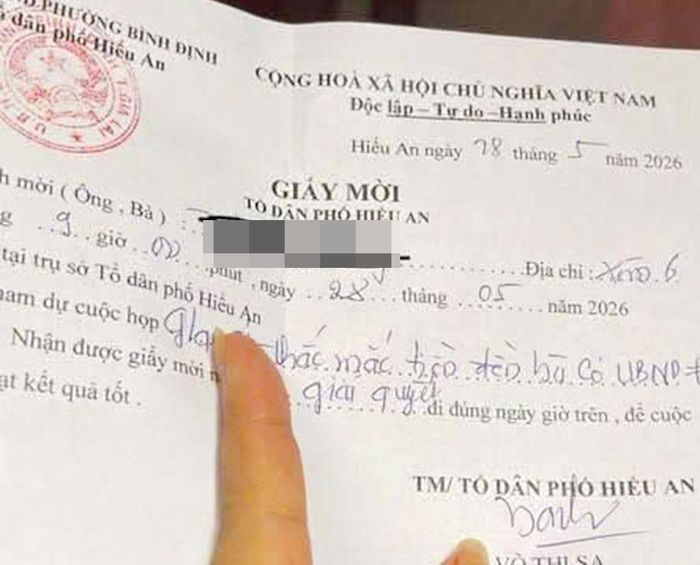 PHƯỜNG BÌNH ĐỊNH
dân phố Hiếu An
CỘNG HOÀ XÃ HỘI CHỦ NGHĨA VIỆT NAM
Độc lập – Tự do – Hạnh phúc
Hiếu An ngày 28 tháng 5 năm 2026
GIẤY MỜI
TỔ DÂN PHỐ HIẾU AN
mời ( Ông , Bà )
9 giờ 00 phút , ngày 28 tháng 05 năm 2026
Địa chỉ : Xóm 6
tại trụ sở Tổ dân phố Hiếu An
am dự cuộc họp thắc mắc UBND
giải quyết
Nhận được giấy mời đi đúng ngày giờ trên , để cuộc
ạt kết quả tốt .
TM/ TỔ DÂN PHỐ HIẾU AN
VÕ THỊ SA